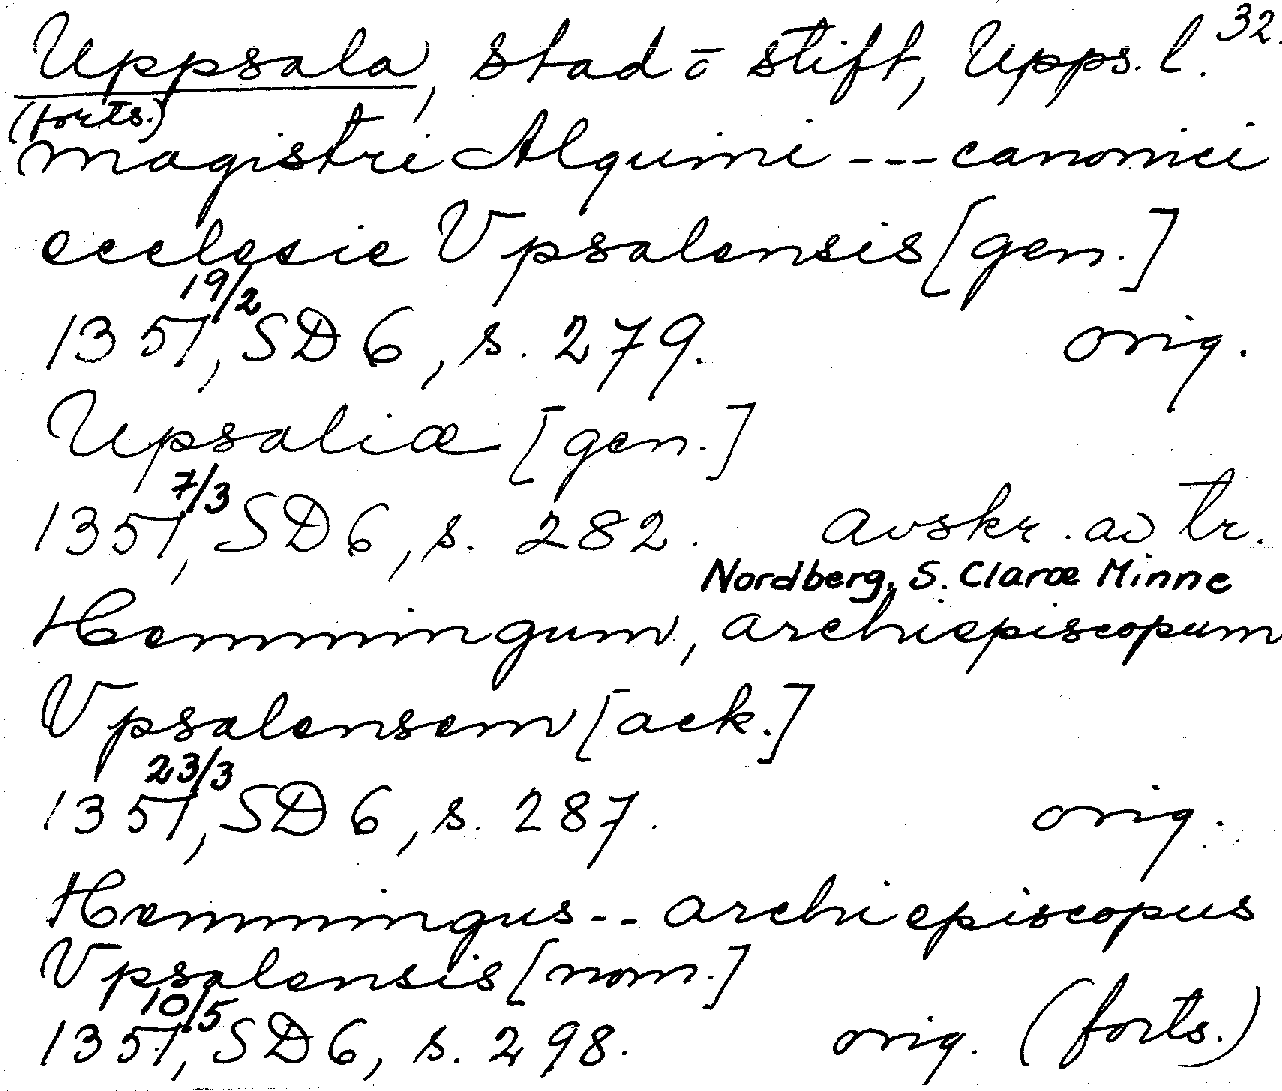 Uppsala, stad o stift, Upps. l. 32.
(forts.)
magistri Algumi --- canonici
ecclesie Vpsalensis [gen.]
1351 19/2, SD 6, s. 279. orig.
Upsaliæ [gen.]
1351 7/3, SD 6, s. 282. avskr. av tr.
Nordberg, S. Claræ Minne
Hemmingum, archiepiscopum
Vpsalensem [ack.]
1351 23/3, SD 6, s. 287. orig.
Hemmingus -- archiepiscopus
Vpsalensis [nom.]
1351 10/5, SD 6, s. 298. orig. (forts.)